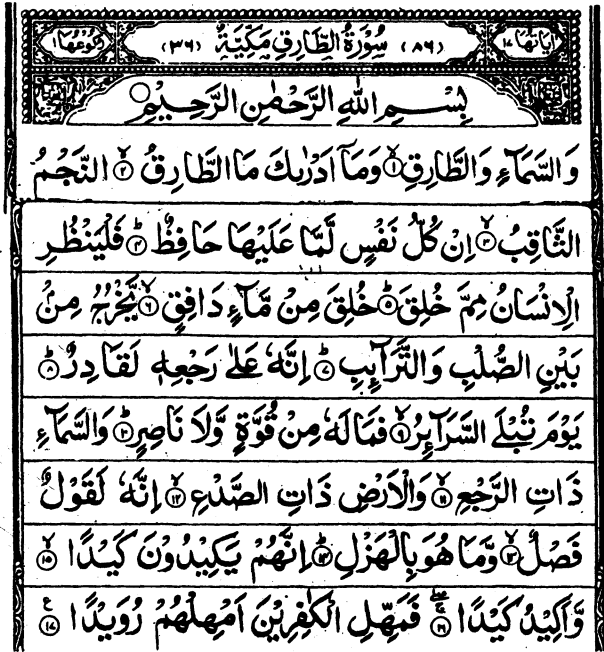 اٰيَاتُهَا ١٧ (٨٦) سُوْرَةُ الطَّارِقِ مَكِّيَّةٌ (٣٦) رُكُوْعُهَا ١
بِسْمِ اللّٰهِ الرَّحْمٰنِ الرَّحِيْمِ
وَالسَّمَآءِ وَالطَّارِقِ ۙ﴿١﴾ وَمَآ اَدْرٰىكَ مَا الطَّارِقُ ۙ﴿٢﴾ النَّجْمُ
الثَّاقِبُ ۙ﴿٣﴾ اِنْ كُلُّ نَفْسٍ لَّمَّا عَلَيْهَا حَافِظٌ ؕ﴿٤﴾ فَلْيَنْظُرِ
الْاِنْسَانُ مِمَّ خُلِقَ ؕ﴿٥﴾ خُلِقَ مِنْ مَّآءٍ دَافِقٍ ۙ﴿٦﴾ يَّخْرُجُ مِنْۢ
بَيْنِ الصُّلْبِ وَالتَّرَآئِبِ ؕ﴿٧﴾ اِنَّهٗ عَلٰى رَجْعِهٖ لَقَادِرٌ ؕ﴿٨﴾
يَوْمَ تُبْلَى السَّرَآئِرُ ۙ﴿٩﴾ فَمَا لَهٗ مِنْ قُوَّةٍ وَّلَا نَاصِرٍ ؕ﴿١٠﴾ وَالسَّمَآءِ
ذَاتِ الرَّجْعِ ۙ﴿١١﴾ وَالْاَرْضِ ذَاتِ الصَّدْعِ ۙ﴿١٢﴾ اِنَّهٗ لَقَوْلٌ
فَصْلٌ ۙ﴿١٣﴾ وَّمَا هُوَ بِالْهَزْلِ ؕ﴿١٤﴾ اِنَّهُمْ يَكِيْدُوْنَ كَيْدًا ۙ﴿١٥﴾
وَّاَكِيْدُ كَيْدًا ۚۖ﴿١٦﴾ فَمَهِّلِ الْكٰفِرِيْنَ اَمْهِلْهُمْ رُوَيْدًا ﴿١٧﴾ ع